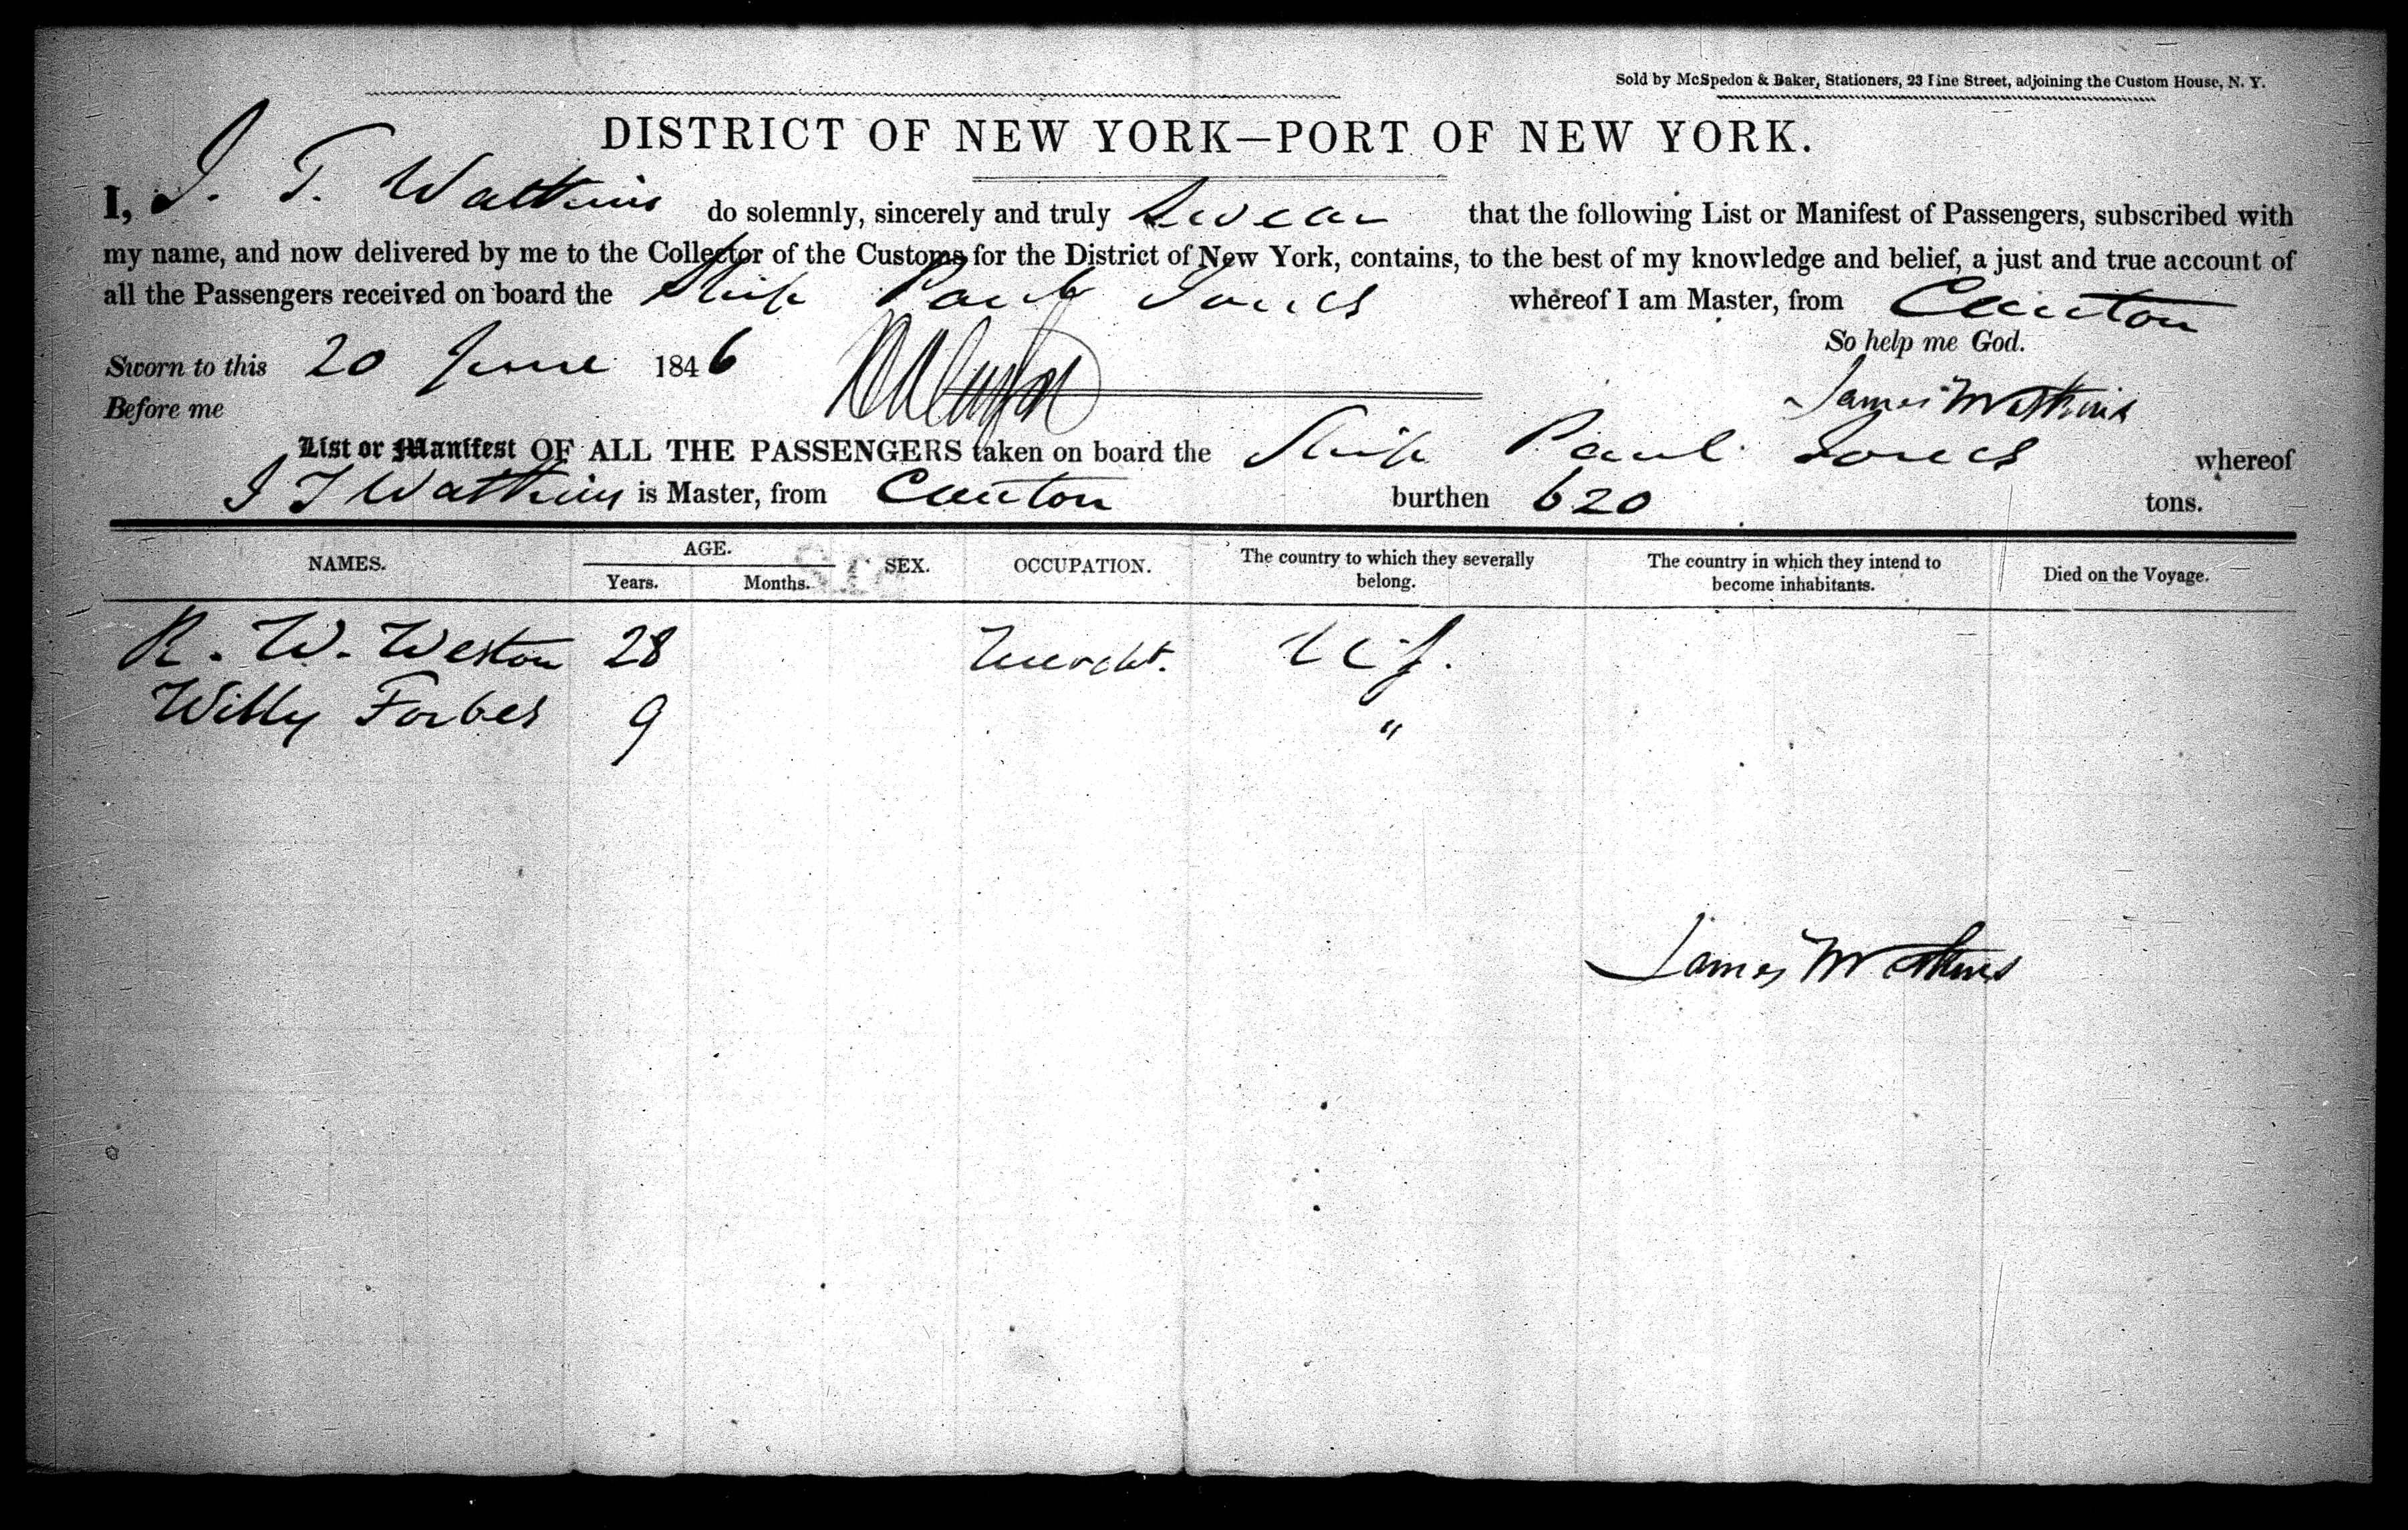 Sold by McSpedon & Baker, Stationers, 23 Pine Street, adjoining the Custom House, N. Y.
DISTRICT OF NEW YORK—PORT OF NEW YORK.
I, J. T. Watkins do solemnly, sincerely and truly Swear that the following List or Manifest of Passengers, subscribed with
my name, and now delivered by me to the Collector of the Customs for the District of New York, contains, to the best of my knowledge and belief, a just and true account of
all the Passengers received on board the Ship Paul Jones whereof I am Master, from Canton
So help me God.
Sworn to this 20 June 1846
James Watkins
Before me
List or Manifest OF ALL THE PASSENGERS taken on board the Ship Paul Jones whereof
J T Watkins is Master, from Canton burthen 620 tons.
NAMES. AGE. SEX. OCCUPATION. The country to which they severally belong. The country in which they intend to become inhabitants. Died on the Voyage.
Years. Months.
R. W. Weston 28 Mercht. U.S.
Willy Forbes 9 "
James Watkins